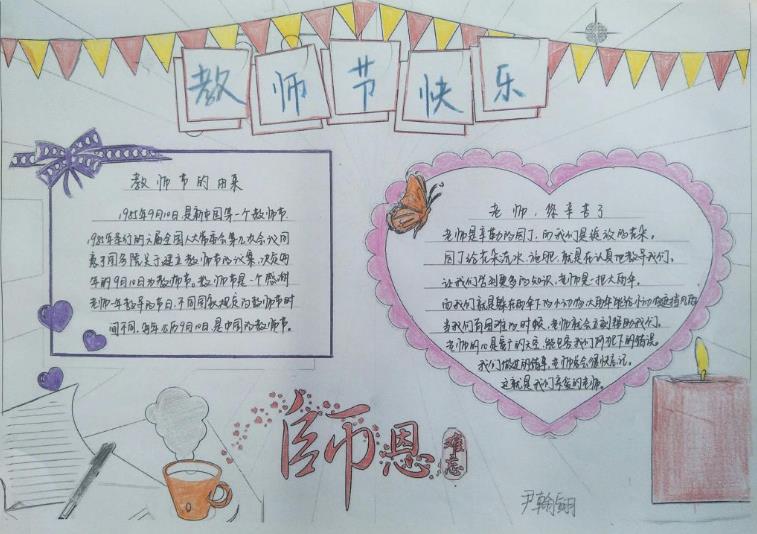 教师节快乐
教师节的由来
1985年9月10日是新中国第一个教师节
1985年举行的六届全国人大常委会第九次会议同
意了国务院关于建立教师节的议案,决定每
年的9月10日为教师节。教师节是一个感谢
老师一年教导的节日,不同国家规定的教师节时
间不同,每年公历9月10日是中国的教师节。
老师,您辛苦了
老师是辛勤的园丁,而我们是绽放的花朵。
园丁给花朵浇水、施肥,就是在认真地教导我们。
让我们学到更多的知识。老师是一把大雨伞,
而我们就是躲在雨伞下的小动物,大雨伞能给小动物遮挡风雨
当我们有困难的时候,老师就会立刻帮助我们。
老师的心是宽广的天空,能包容我们所犯下的错误。
我们做过的错事,老师总会很快忘记。
这就是我们亲爱的老师。
師恩难忘
尹翰翔